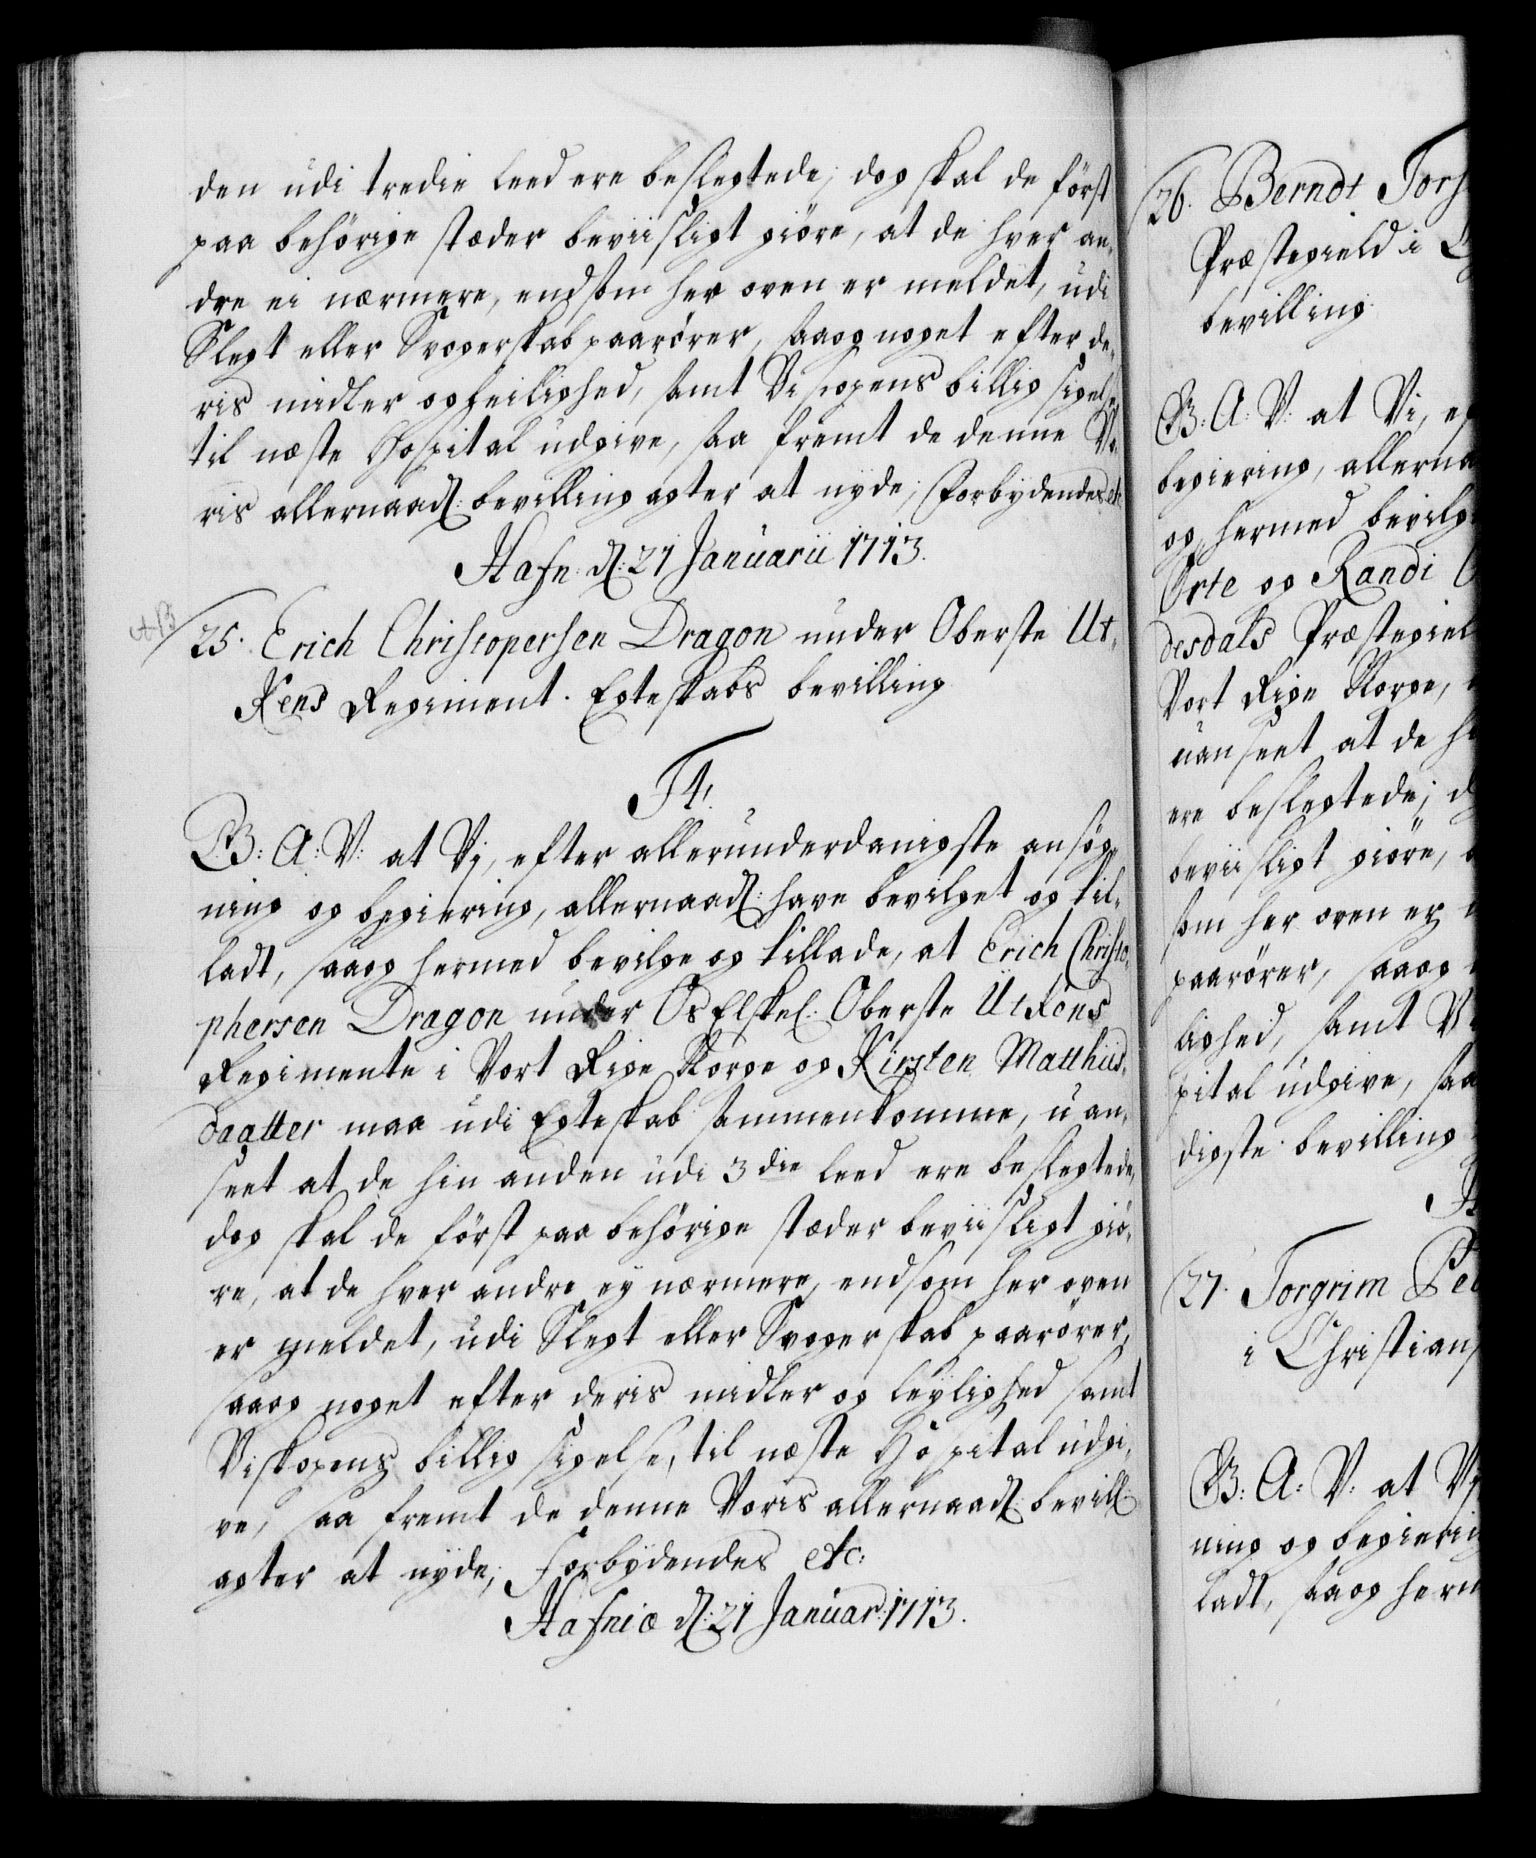 den udi tredie leed ere beslegtede, dog skal de først
paa behörige stæder beviisligt giöre, at de hver an-
dre ei nærmere, end som her oven er meldet, udi
Slegt eller Svogerskab paarörer, saa og noget efter de-
ris midler og leilighed, samt Biskopens billig sigelse
til næste Hospital udgive, saa fremt de denne Vo-
ris allernaad: bevilling agter at nyde; Forbydendes etc
Hafn: d: 21 Januarii 1713.
25. Erich Christopersen Dragon under Oberste Ut-
Kens Regiment. Egteskabs bevilling
Ft:
G: A: V: at Vj, efter allerunderdanigste ansög-
ning og begiering, allernaad: have bevilget og til-
ladt, saa og hermed bevilge og tillade, at Erich Christo-
phersen Dragon under Os Elskel: Oberste Utkens
Regimente i Vort Rige Norge og Kirsten Matthiis-
daatter maa udi Egteskab sammenkomme, uan-
seet at de hin anden udi 3die leed ere beslegtede,
dog skal de först paa behörige stæder beviisligt giö-
re, at de hver andre ey nærmere, end som her oven
er meldet, udi Slegt eller Svogerskab paarörer,
saa og noget efter deris midler og leylighed samt
Biskopens billig sigelse, til næste Hospital udgi-
ve, saa fremt de denne Voris allernaad: bevill:
agter at nyde, Forbydendes etc:
Hafniæ d: 21 Januar: 1713.
26. Berndt Tors
Præstegield i
bevilling
G: A: V: at Vi, ef
begiering, allerna
og hermed bevilge
Orte og Randi
desdals Præstegiel
Vort Rige Norge,
uanseet at de hi
ere beslegtede; d
beviisligt giöre, a
som her oven er
paarörer, saa og
lighed, samt
pital udgive, saa
digste bevilling
27. Torgrim Ped
i Christians
G: A: V: at Vj
ning og begierin
ladt, saa og herm